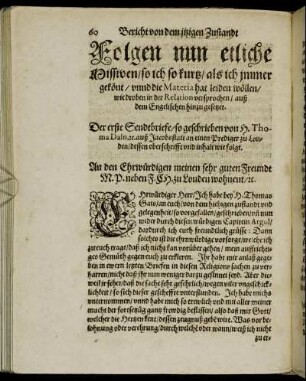 60 Bericht von dem jtzigen Zustandt
Folgen nun etliche
Missiven / so ich so kurtz / als ich jmmer
gekönt / vnnd die Materia hat leiden wöllen /
wie droben in der Relation versprochen / auß
dem Engelischen hinzu gesetzt.
Der erste Sendtbrieff / so geschrieben von H. Tho-
ma Dalu, auß Jacobsstatt an einen Prediger zu Lon-
den / dessen vberschrifft vnd inhalt wie folgt.
An den Ehrwürdigen meinen sehr guten Freundt
M. P. neben F. H. zu Londen wohnent / ꝛc.
Ehrwürdiger Herr / Ich habe bey H. Thomas
an euch / von dem hiesigen zustandt vnd
gelegenheit / so vor gefallen / geschrieben: vnd nun
wider durch diesen würdigen Capitain Argol /
dardurch ich euch freundtlich grüsse: Dann
solches ist die ehrwürdige vorsorg / welche ich
zu euch trage / daß ich nicht kan vorüber gehen / mein auffrichti-
ges Gemüth gegen euch zu erklären. Ihr habt mir anlaß gege-
ben in ewern letzten Brieffen in diesen Religions sachen zu ver-
harren / nicht
weil ich sehe / daß die sache sehr gefehrlich / wegen
ligkeit / so sich dieser geschefft vnterstanden. Ich habe michs
vnternommen / vnnd habe mich so ernstlich vnd mit aller meiner
macht die fortsetzung gantz
welcher die Hertzen kent / dessen zeugnuß gebe
lohnung oder verehrung / durch welche oder wann / weiß ich nicht
zu er-